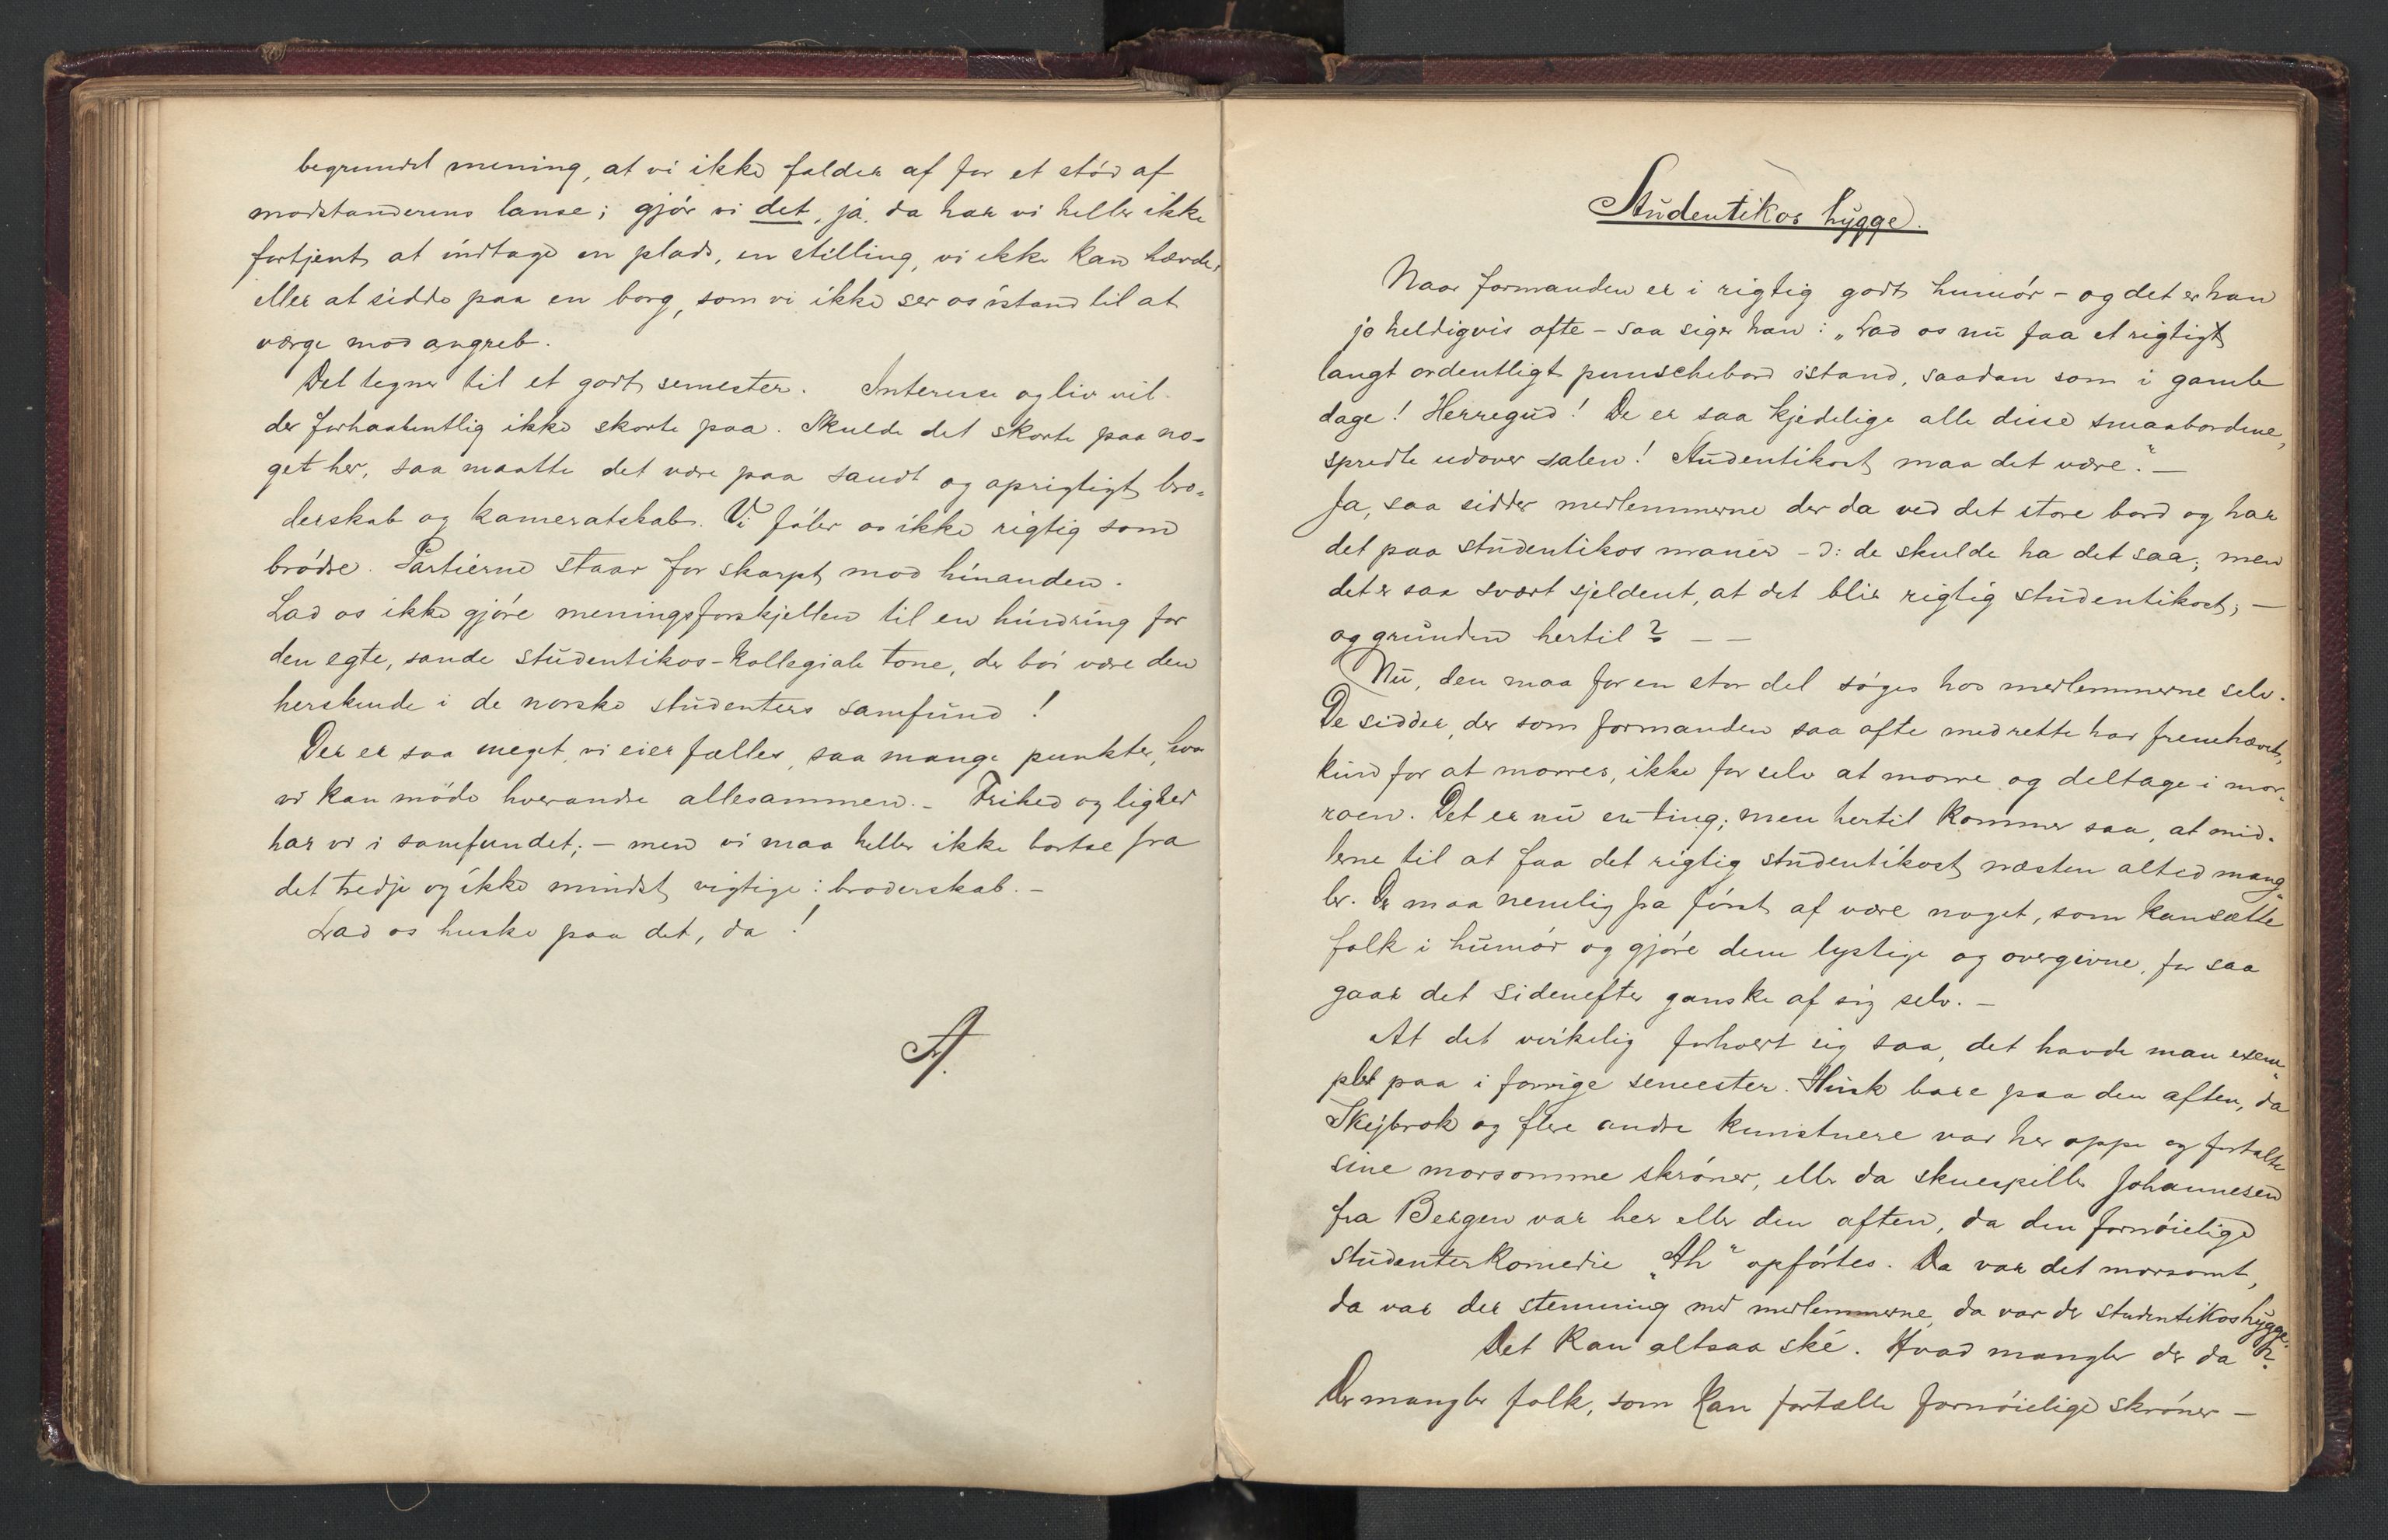 begrundet mening, at vi ikke falder af for et stød af
modstanderens lanse; gjør vi det, ja, da har vi heller ikke
fortjent at indtage en plads, en stilling, vi ikke kan hævde,
eller at sidde paa en borg, som vi ikke ser os istand til at
værge mod angreb.
Det tegner til et godt semester. Interesse og liv vil
der forhaabentlig ikke skorte paa. Skulde det skorte paa no-
get her, saa maatte det være paa sandt og oprigtigt bro-
derskab og kameratskab. Vi føler os ikke rigtig som
brødre. Partierne staar for skarpt mod hinanden.
Lad os ikke gjøre meningsforskjellen til en hindring for
den egte, sande studentikos-kollegiale tone, der bør være den
herskende i de norske studenters samfund!
Der er saa meget, vi eier fælles, saa mange punkter, hvor
vi kan møde hverandre allesammen. – Frihed og lighed
har vi i samfundet; – men vi maa heller ikke bortse fra
det tredje og ikke mindst vigtige: broderskab. –
Lad os huske paa det, da!
A.
Studentikos hygge.
Naar formanden er i rigtig godt humør – og det er han
jo heldigvis ofte – saa siger han: „Lad os nu faa et rigtigt
langt ordentligt punschebord istand, saadan som i gamle
dage! Herregud! De er saa kjedelige alle disse smaabordene,
spredte udover salen! Studentikost maa det være." –
Ja, saa sidder medlemmerne der da ved det store bord og har
det paa studentikos manér – ɔ: de skulde ha det saa; men
det er saa svært sjeldent, at det blir rigtig studentikost; –
og grunden hertil? – –
Nu, den maa for en stor del søges hos medlemmerne selv.
De sidder, der som formanden saa ofte med rette har fremhævet,
kun for at morres, ikke for selv at morre og deltage i mor-
roen. Det er nu en ting; men hertil kommer saa, at mid-
lerne til at faa det rigtig studentikost næsten altid mang-
ler. Der maa nemlig fra først af være noget, som kan sætte
folk i humør og gjøre dem lystige og overgivne, for saa
gaar det sidenefter ganske af sig selv. –
At det virkelig forholdt sig saa, det havde man exem-
plet paa i forrige semester. Husk bare paa den aften, da
Skeibrok og flere andre kunstnere var her oppe og fortalte
sine morsomme skrøner, eller da skuespiller Johannesen
fra Bergen var her eller den aften, da den fornøielige
studenterkomedie „Ah" opførtes. Da var det morsomt,
da var der stemning med medlemmerne, da var der studentikos hygge.
Det kan altsaa ské. Hvad mangler der da?
Der mangler folk, som kan fortælle fornøielige skrøner –